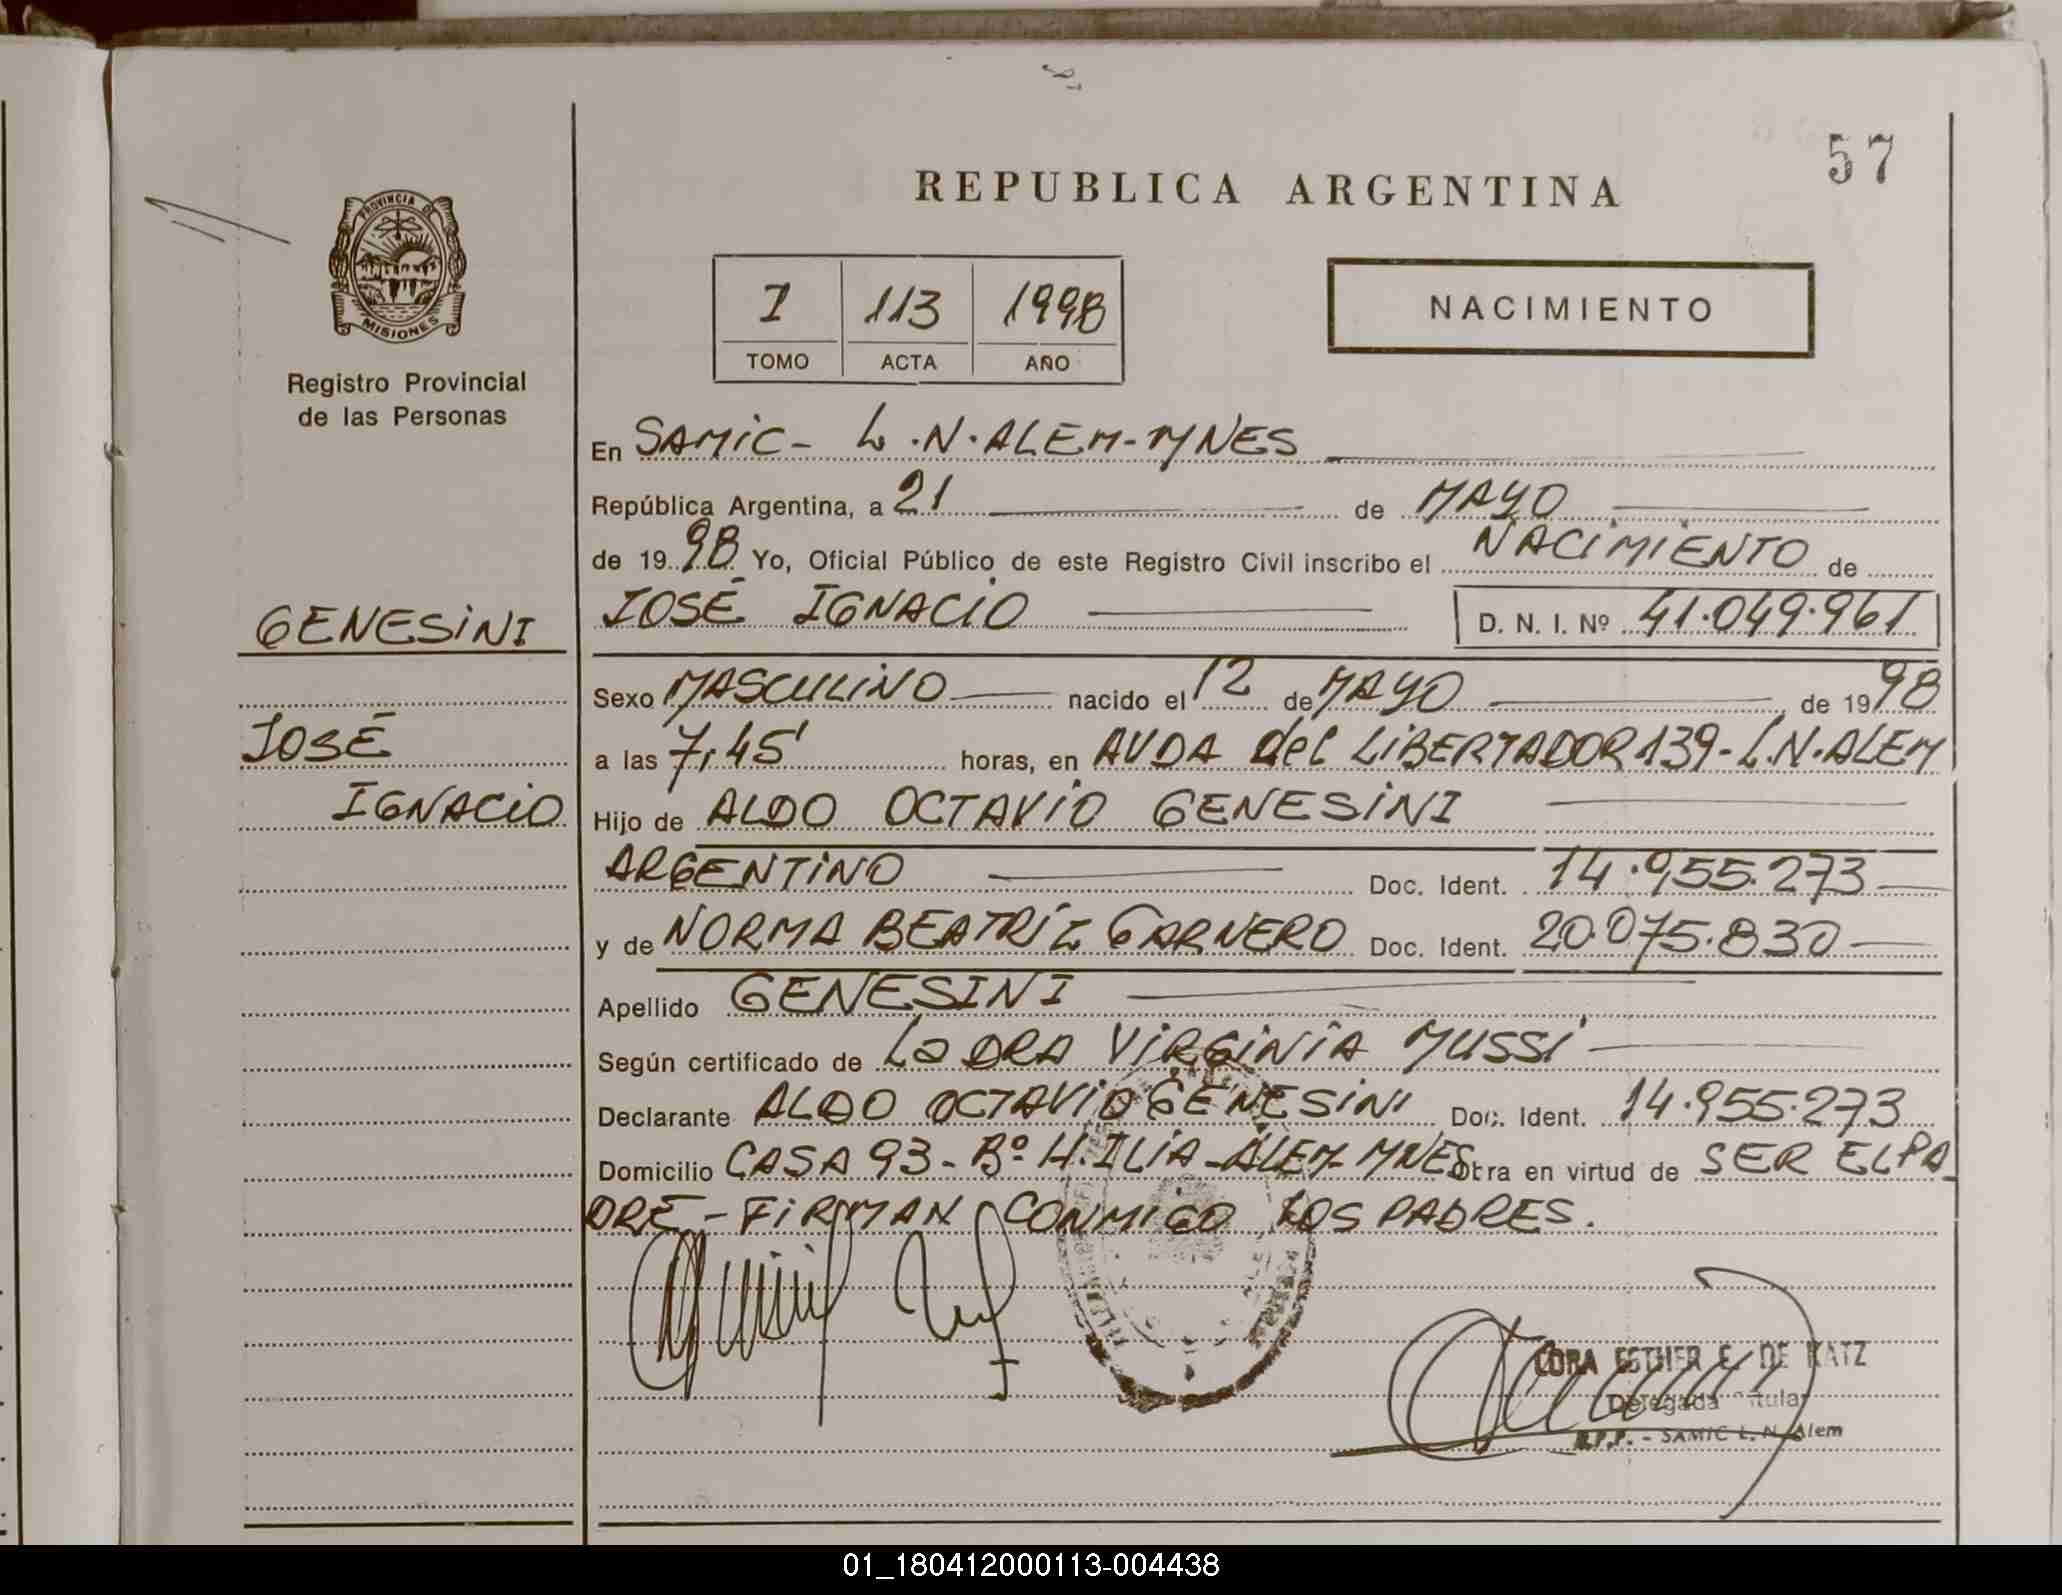 57
REPUBLICA ARGENTINA
PROVINCIA DE
MISIONES
Registro Provincial
de las Personas
I 113 1998
TOMO ACTA AÑO
NACIMIENTO
En SAMIC - L.N.ALEM-MNES
República Argentina, a 21 de MAYO
de 1998 Yo, Oficial Público de este Registro Civil inscribo el NACIMIENTO de
GENESINI
JOSÉ IGNACIO D. N. I. Nº 41.049.961
Sexo MASCULINO nacido el 12 de MAYO de 1998
JOSÉ
a las 7,45' horas, en AVDA del LIBERTADOR 139-L.N.ALEM
IGNACIO
Hijo de ALDO OCTAVIO GENESINI
ARGENTINO Doc. Ident. 14.955.273
y de NORMA BEATRIZ GARNERO Doc. Ident. 20.075.830
Apellido GENESINI
Según certificado de La DRA VIRGINIA MUSSI
Declarante ALDO OCTAVIO GENESINI Doc. Ident. 14.955.273
Domicilio CASA 93 - Bº H.ILIA - ALEM - MNES Obra en virtud de SER EL PA-
DRE - FIRMAN CONMIGO LOS PADRES.
CORA ESTHER E. DE KATZ
Delegada Titular
R.P.P. - SAMIC L. N. Alem
01_180412000113-004438